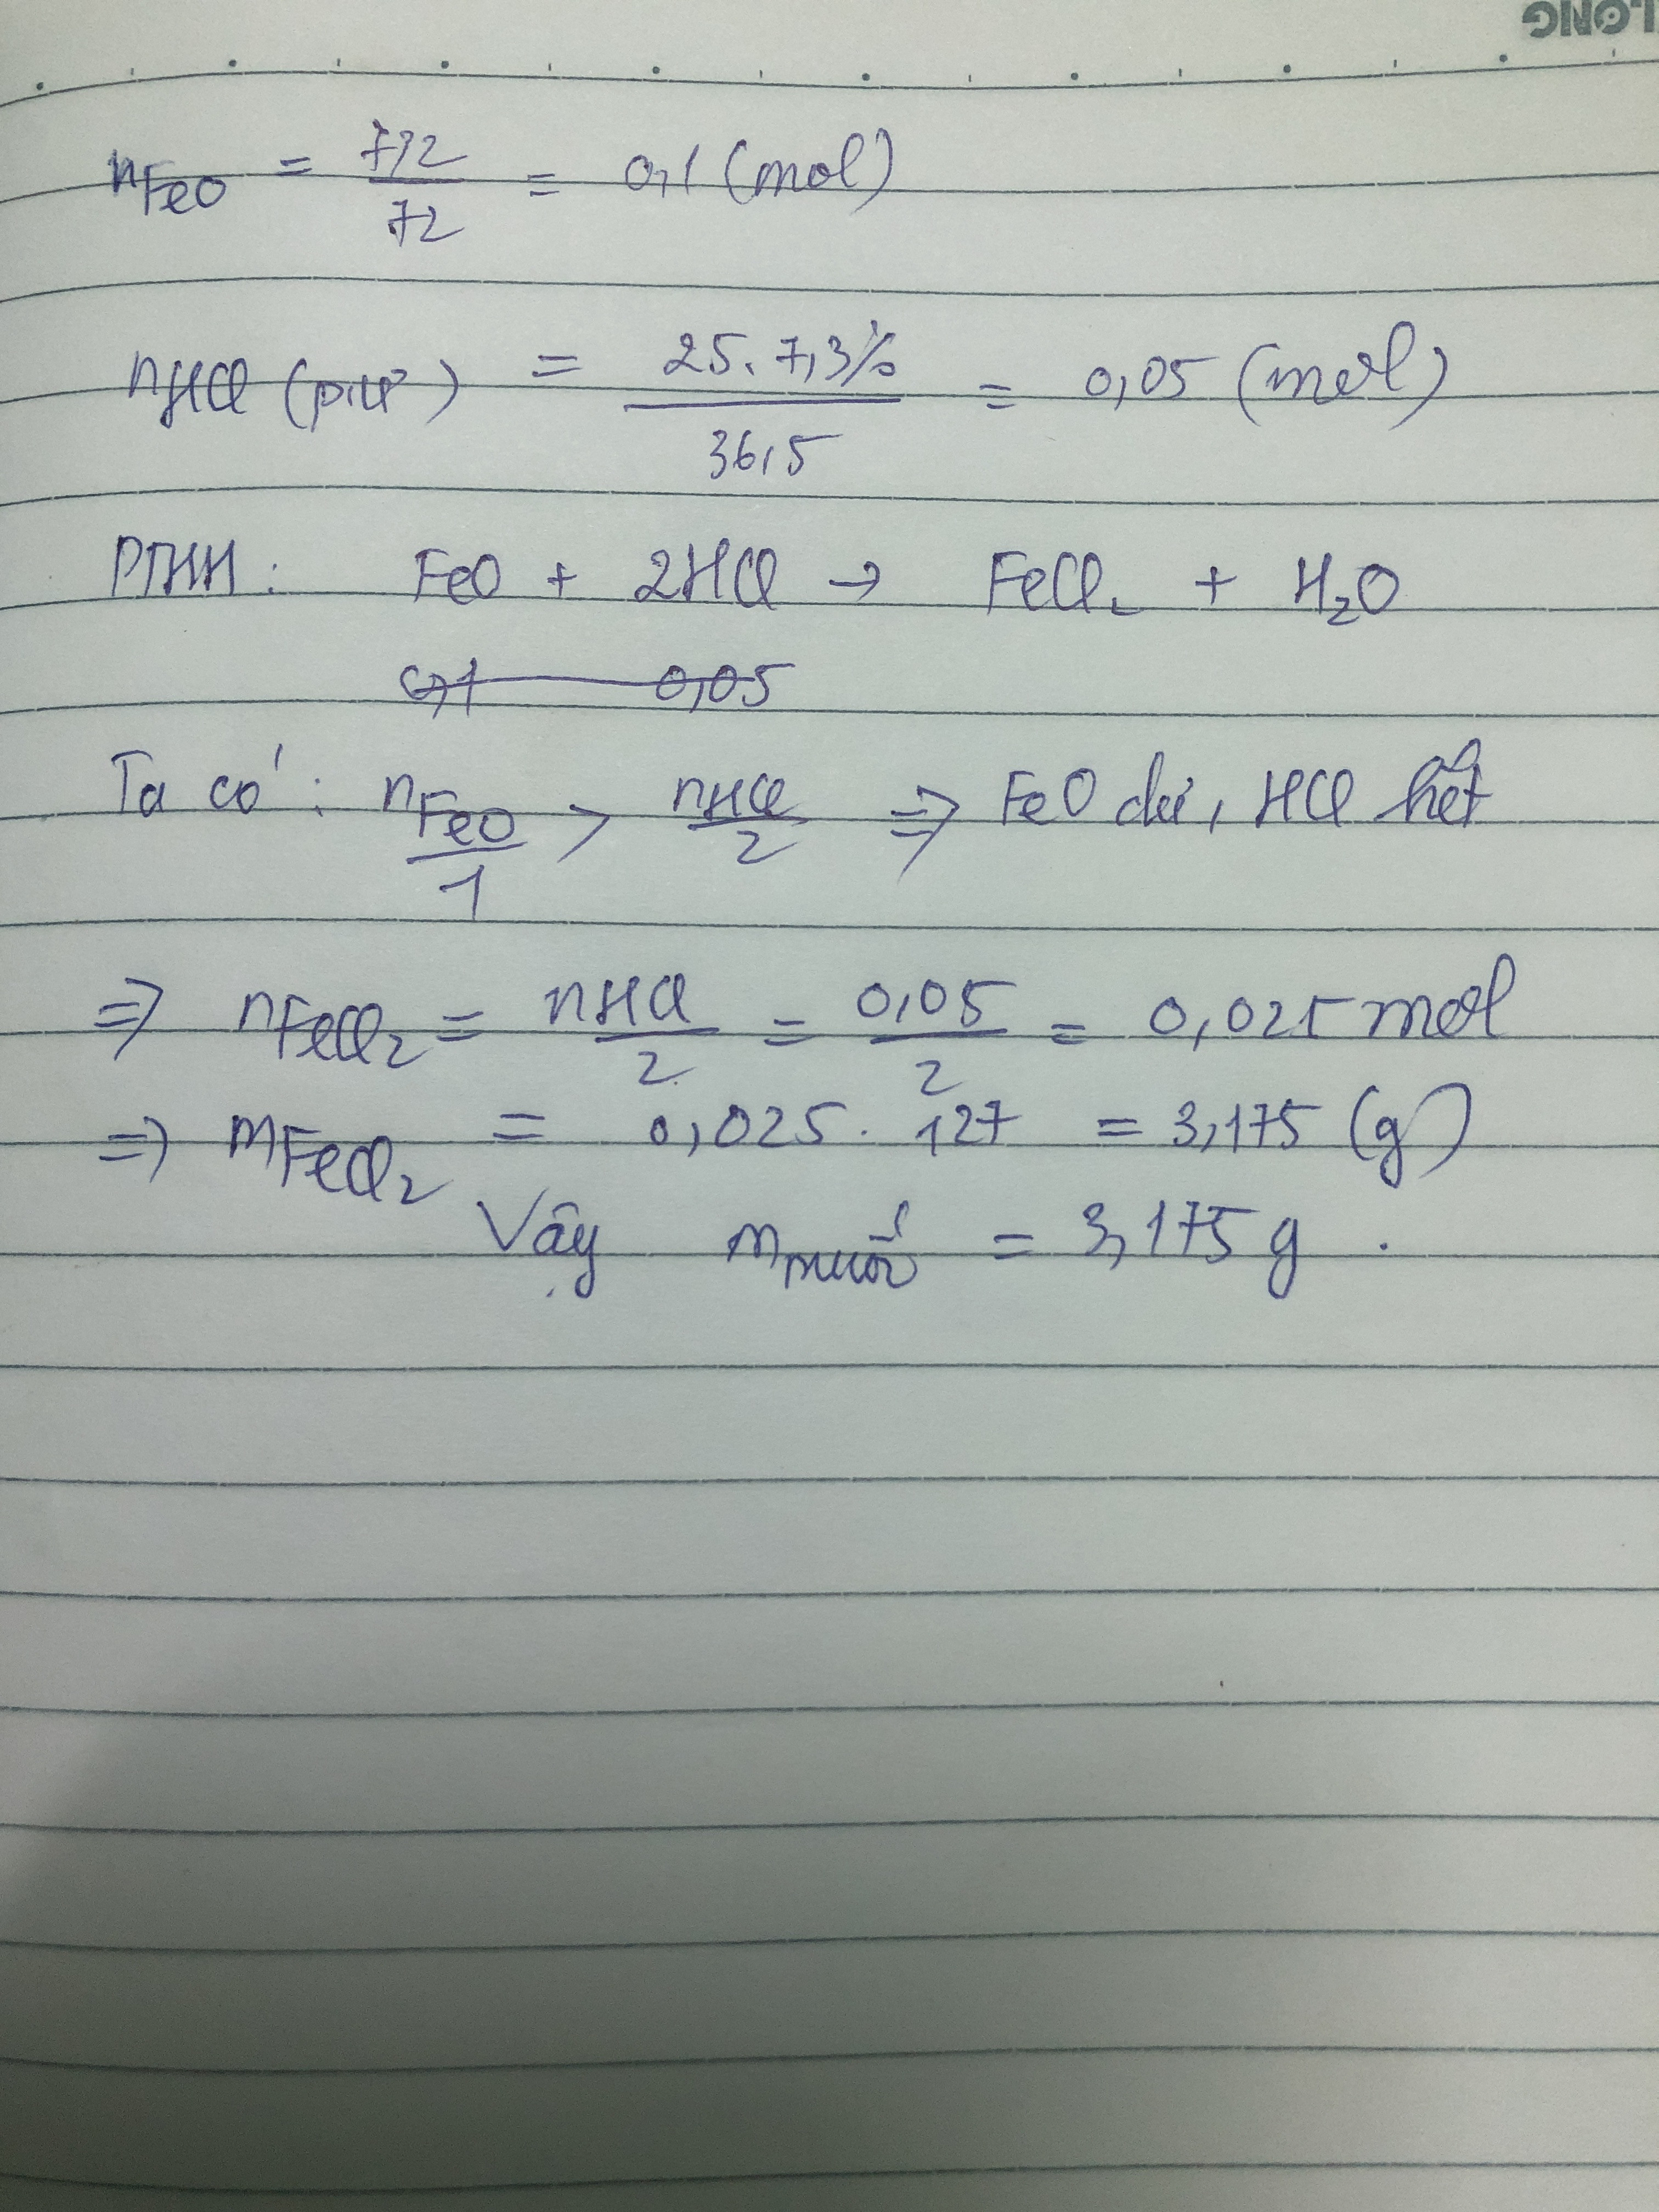 LONG
nFeO = 7,2/72 = 0,1 (mol)
nHCl (p.ư) = 25.7,3%/36,5 = 0,05 (mol)
PTHH: FeO + 2HCl → FeCl₂ + H₂O
0,1 0,05
Ta có: nFeO/1 > nHCl/2 => FeO dư, HCl hết
=> nFeCl₂ = nHCl/2 = 0,05/2 = 0,025 mol
=> mFeCl₂ = 0,025. 127 = 3,175 (g)
Vậy mmuối = 3,175g.